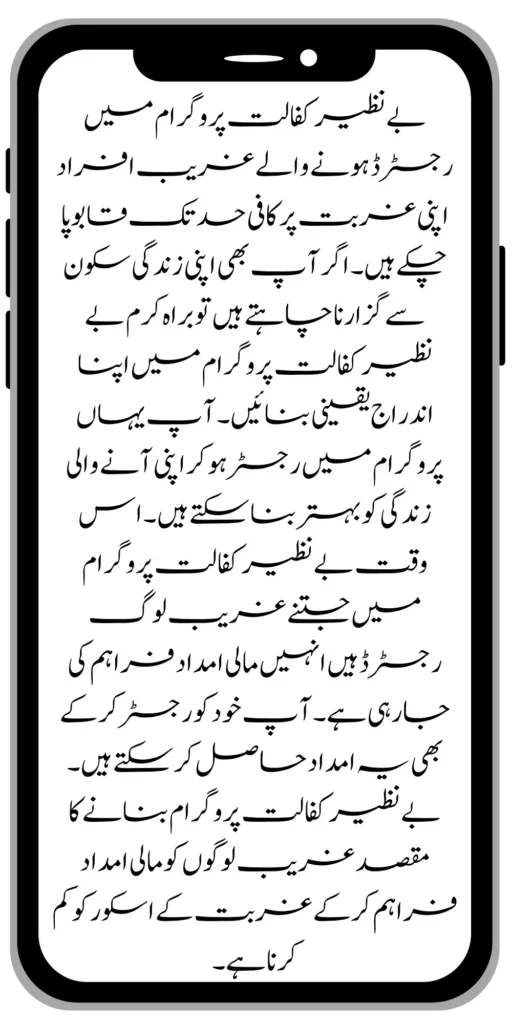 بے نظیر کفالت پروگرام میں
رجسٹرڈ ہونے والے غریب افراد
اپنی غربت پر کافی حد تک قابو پا
چکے ہیں۔ اگر آپ بھی اپنی زندگی سکون
سے گزارنا چاہتے ہیں تو براہ کرم بے
نظیر کفالت پروگرام میں اپنا
اندراج یقینی بنائیں۔ آپ یہاں
پروگرام میں رجسٹر ہو کر اپنی آنے والی
زندگی کو بہتر بنا سکتے ہیں۔ اس
وقت بے نظیر کفالت پروگرام
میں جتنے غریب لوگ
رجسٹرڈ ہیں انہیں مالی امداد فراہم کی
جا رہی ہے۔ آپ خود کو رجسٹر کر کے
بھی یہ امداد حاصل کر سکتے ہیں۔
بے نظیر کفالت پروگرام بنانے کا
مقصد غریب لوگوں کو مالی امداد
فراہم کر کے غربت کے اسکور کو کم
کرنا ہے۔